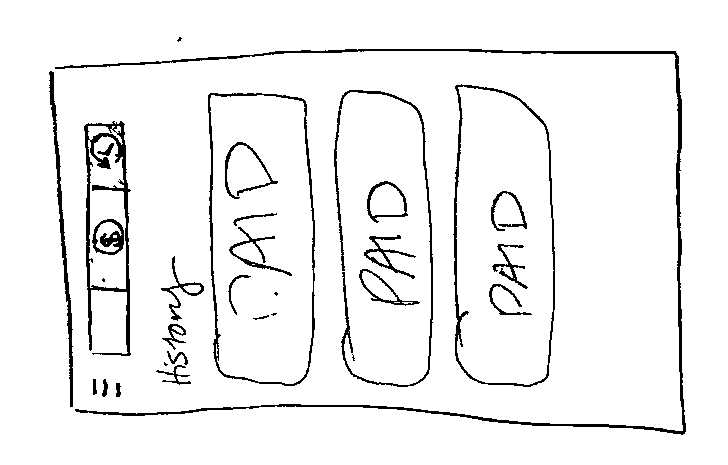 $
History
PAID
PAID
PAID